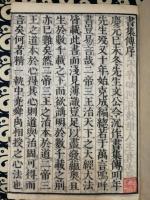 書集傳序
慶元己未冬先生文公令沈作書集傳明年
先生歿又十年始克成編總若干萬言嗚呼
書豈易言哉二帝三王治天下之大經大法
皆載此書而淺見薄識豈足以盡發蘊奧且
生於數千載之下而欲講明於數千載之前
亦已難矣然二帝三王之治本於道二帝三
王之道本於心得其心則道與治固可得而
言矣何者精一執中堯舜禹相授之心法也